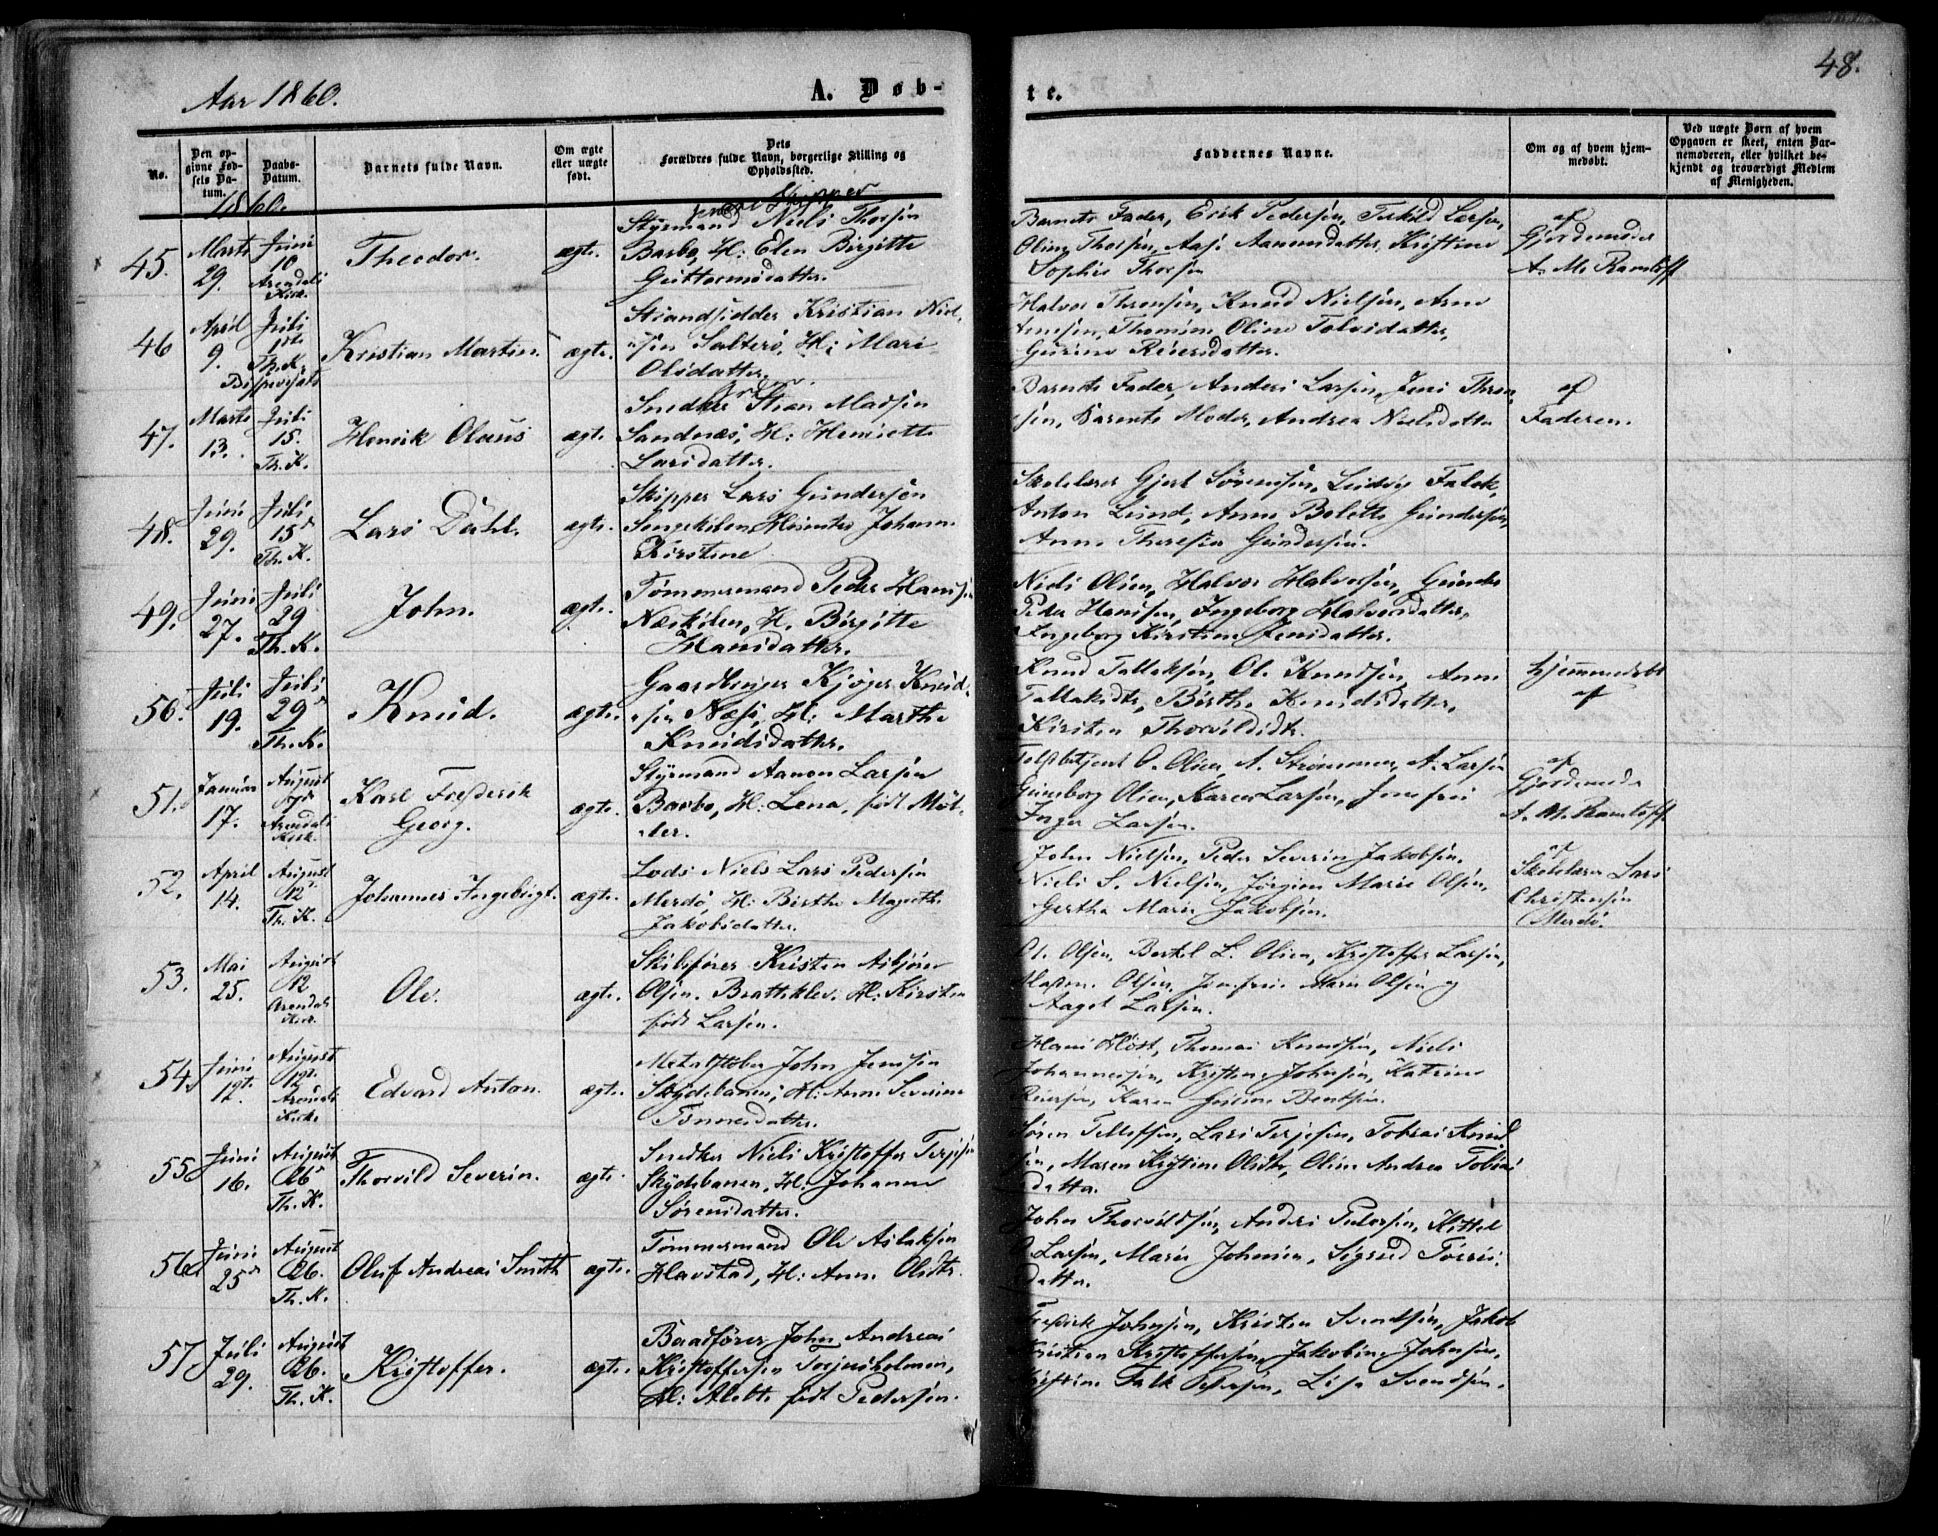 48.
Aar 1860.
A. Døb-
te.
No.
Den op-
givne Fød-
sels Da-
tum.
Daabs-
Datum.
Barnets fulde Navn.
Om ægte
eller uægte
født.
Dets
Forældres fulde Navn, borgerlige Stilling og
Opholdssted.
Faddernes Navne.
Om og af hvem hjem-
medøbt.
Ved uægte Børn af hvem
Opgaven er skeet, enten Bar-
nemoderen, eller hvilket be-
kjendt og troværdigt Medlem
af Menigheden.
1860.
45.
Marts
29.
Juni
10
Arendals
Kirk.
Theodor.
ægte.
Skipper
Styrmand Niels Thorsen
Barbo, H: Elen Birgitte
Guttormsdatter.
Barnets Fader, Erik Pedersen, Terkild Larsen,
Oline Thorsen, Aase Aanonsdatter, Kristine
Sophie Thorsen
af
Gjordemoder
A. M. Ramløff
46
April
9.
Juli
1ste
Th. K.
Bispevisats
Kristian Martin.
ægte.
Strandsidder Kristian Niel-
sen Salterø, H: Mari
Olsdatter.
Halvor Thronsen, Knud Nielsen, Arne
Jensen, Thomine Oline Tolvsdatter,
Gurine Reiersdatter.
47.
Marts
13.
Juli
15.
Th. K.
Henrik Olaus
ægte
Snedker Stian Madsen
Sandnæs, H: Henriette
Larsdatter.
Barnets Fader, Anders Larsen, Jens Thron-
sen, Barnets Moder, Andrea Nielsdatter
af
Faderen.
48.
Juni
29.
Juli
15de
Th. K.
Lars Dahl.
ægte.
Skipper Lars Gundersen
Songekilen, Hustru Johanne
Kirstine
Skolelærer Gjert Sørensen, Ludvig Falck,
Anton Lund, Anne Bolette Gundersen,
Anne Theresia Gundersen.
49.
Juni
27.
Juli
29
Th. K.
John.
ægte.
Tømmermand Peder Hansen
Næskilen, H. Birgitte
Hansdatter.
Niels Olsen, Halvor Halvorsen, Gunder
Peder Hansen, Ingeborg Halvorsdatter,
Ingeborg Kirstine Jensdatter.
50.
Juli
19.
Juli
29de
Th. K.
Knud.
ægte.
Gaardbruger Kjøger Knud-
sen Næs, H: Marthe
Knudsdatter.
Knud Tallaksen, Ole Knudsen, Anne
Tallaksdtr, Birthe Knudsdatter,
Kirsten Thorvildsdtr.
hjemmedøbt
af
51.
Januar
17.
August
Arendals
Kirk.
Karl Frederik
Georg.
ægte.
Styrmand Aanon Larsen
Barbo, H: Lena, født Møl-
ler.
Toldbetjent O. Olsen, A. Strømmen, A. Larsen
Gunborg Olsen, Karen Larsen, Jomfru
Inger Larsen.
af
Gjordemoder
A. M. Ramløff.
52.
April
14.
August
12
Th. K.
Johannes Ingebrigt.
ægte.
Lods Niels Lars Pedersen
Merdø, H: Birthe Magrethe
Jakobsdatter.
John Nielsen, Peder Severin Jakobsen,
Niels S. Nielsen, Jørgine Marie Olsen,
Gertha Marie Jakobsen.
af
Skolelærer Lars
Christensen
Merdø.
53.
Mai
25.
August
12
Arendals
Kirk.
Ole.
ægte.
Skibsfører Kristen Asbjørn
Olsen. Bratteklev. H: Kirsten
født Larsen.
O. Olsen, Bertel L. Olsen, Kristoffer Larsen,
Olsen, Jomfru Marie Olsen og
Aagot Larsen.
54
Juni
August
12
Arendals
Kirk.
Edvard Anton.
ægte.
Metalstøber John Jensen
Skydebanen, H: Anne Severine
Tønnesdatter.
Hans Høst, Thomas Knudsen, Niels
Johannesen, Kristine Johnsen, Katrine
Reiersen, Karen Bentsen.
55
Juni
16.
August
26de
Th. K.
Thorvild Severin.
ægte.
Snedker Niels Kristoffer Terjesen
Skydebanen, H: Johanne
Sørensdatter.
Søren Tellefsen, Lars Terjesen, Tobias Knud-
sen, Maren Kristine Olsdtr, Oline Andrea Tobias-
datter.
56
Juni
25de
August
26.
Th. K.
Oluf Andreas Smith
ægte.
Tømmermand Ole Aslaksen
Havstad, H: Anne Olsdtr.
John Thorvildsen, Anders Pedersen, Kittel
Larsen, Marie Johnsen, Sigrud Torris-
datter.
57
Juli
29.
August
26.
Th. K.
Kristoffer.
ægte.
Baadfører John Andreas
Kristoffersen Torjusholmen,
H: Alette født Pedersen.
Fredrik Johnsen, Kristen Svendsen, Jakob
Kristian Kristoffersen, Jakobine Johnsen,
Kristine Falk Petersen, Lise Svendsen.